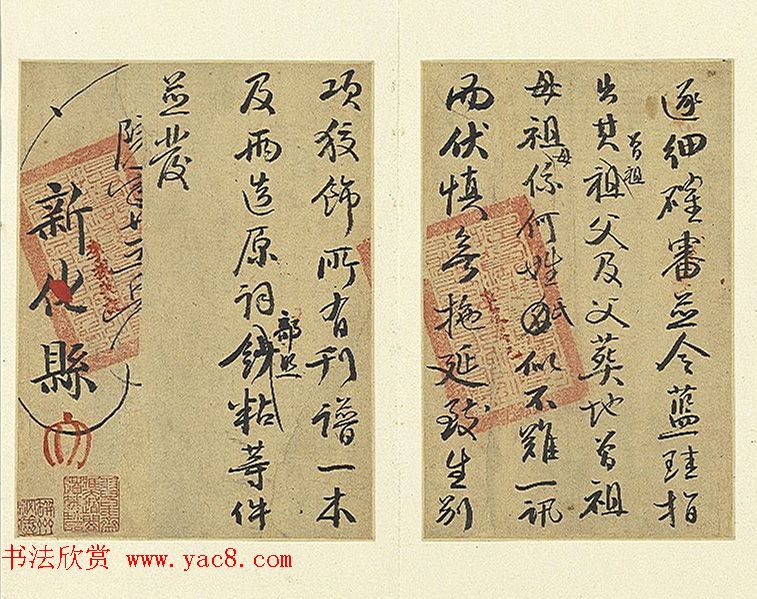 逐细確審並令藍珪指
出其曾祖祖父及父葬地曾祖
母祖母係何姓氏似不難一訊
而伏慎毋拖延致生别
項狡飾所有刊譜一本
及两造原詞部照鈔粘等件
並發
新化縣
书法欣赏 www.yac8.com